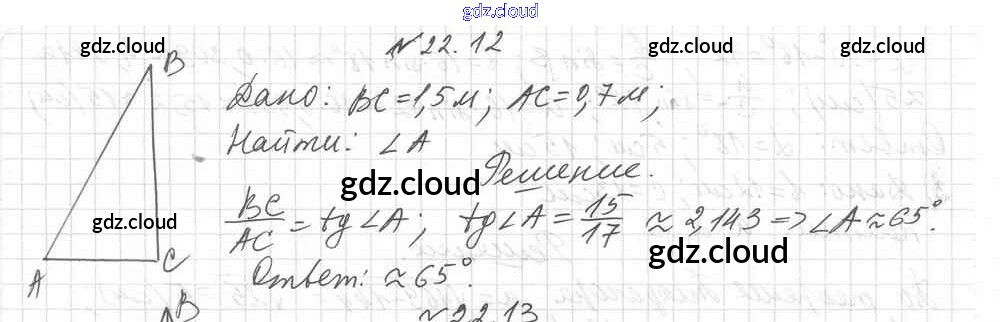 gdz.cloud
№ 22.12
gdz.cloud gdz.cloud
B
Дано: BC = 1,5 м; AC = 0,7 м;
Найти: ∠A
gdz.cloud
Решение.
gdz.cloud
BC/AC = tg∠A; tg∠A = 15/17 ≈ 2,143 => ∠A ≈ 65°.
gdz.cloud
A C
Ответ: ≈ 65°.
B
№ 22.13